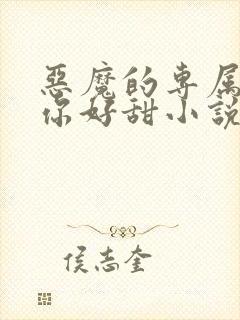 惡魔的专属
你好甜小說
侯志奎